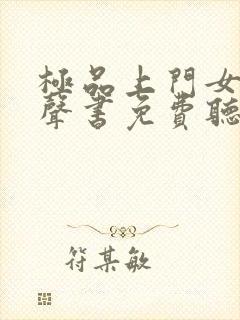 極品上門女
聲書免費聽
符某敏